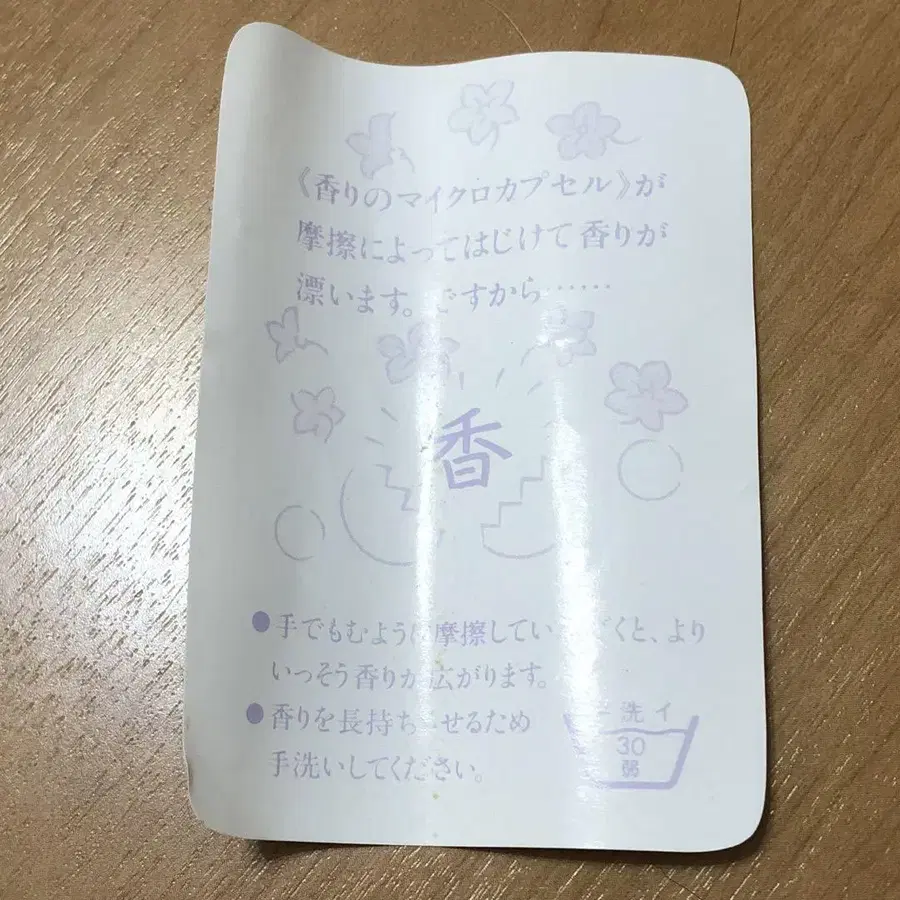 《香りのマイクロカプセル》が
摩擦によってはじけて香りが
漂います。ですから……
香
●手でもむように摩擦していただくと、より
いっそう香りが広がります。
●香りを長持ちさせるため
手洗いしてください。
手洗イ
30
弱